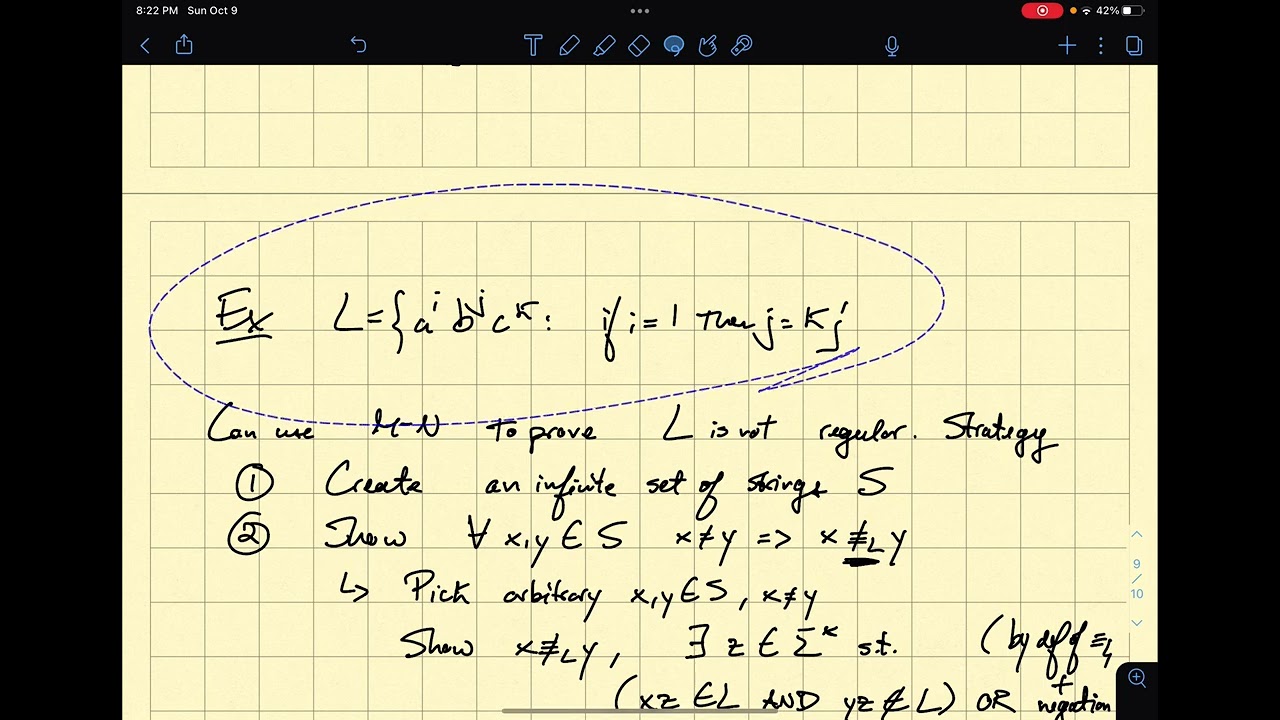 8:22 PM Sun Oct 9
42%
Ex L = { a^i b^j c^k : if i = 1 then j = k }
Can use M-N to prove L is not regular. Strategy
① Create an infinite set of strings S
② Show ∀ x,y ∈ S x ≠ y => x ≢_L y
↳ Pick arbitrary x,y ∈ S, x ≠ y
Show x ≢_L y, ∃ z ∈ Σ* s.t. (by def of ≡_L
+
(xz ∈ L AND yz ∉ L) OR negation
9
/
10